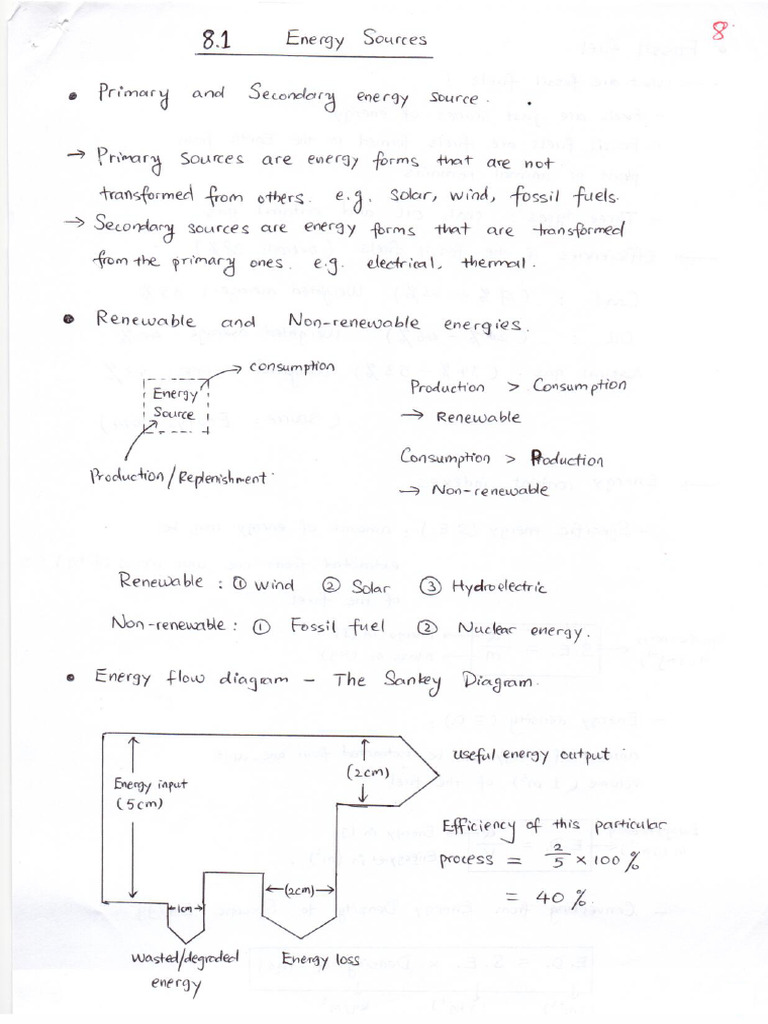 8.
8.1 Energy Sources
• Primary and Secondary energy source.
→ Primary sources are energy forms that are not
transformed from others. e.g. solar, wind, fossil fuels.
→ Secondary sources are energy forms that are transformed
from the primary ones. e.g. electrical, thermal.
• Renewable and Non-renewable energies.
consumption
Energy
Source
Production/Replenishment
Production > Consumption
→ Renewable
Consumption > Production
→ Non-renewable
Renewable : ① Wind ② Solar ③ Hydroelectric
Non-renewable : ① Fossil fuel ② Nuclear energy.
• Energy flow diagram – The Sankey Diagram.
Energy input
(5cm)
(2cm)
useful energy output
1cm
(2cm)
Wasted/degraded
energy
Energy loss
Efficiency of this particular
process = 2/5 × 100 %
= 40 %